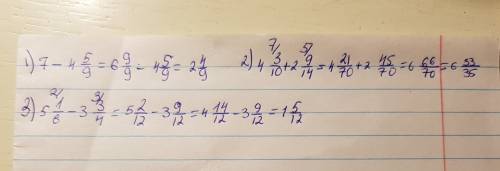 1) 7 - 4 5/9 = 6 9/9 - 4 5/9 = 2 4/9 2) 4 7/ 3/10 + 2 5/ 9/14 = 4 21/70 + 2 45/70 = 6 66/70 = 6 33/35
3) 5 2/ 1/6 - 3 3/ 3/4 = 5 2/12 - 3 9/12 = 4 14/12 - 3 9/12 = 1 5/12